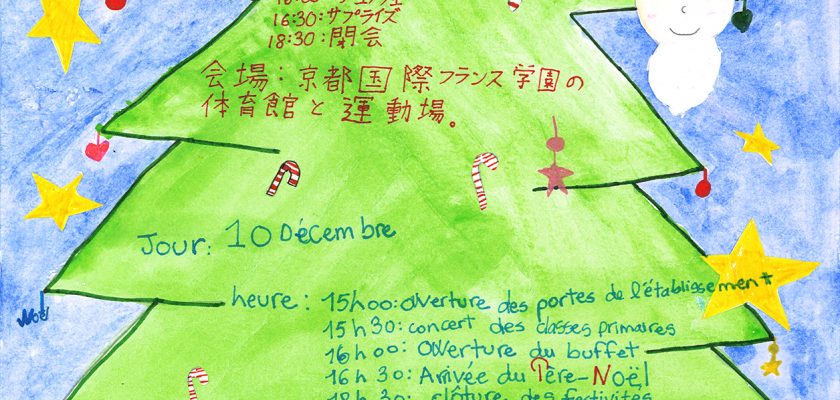 16:30:サプライズ
18:30:閉会
会場:京都国際フランス学園の
体育館と運動場。
Jour: 10 Décembre
heure: 15h00: Overture des portes de l'établissement
15h30: concert des classes primaires
16h00: Overture du buffet
16h30: Arrivée du Père-Noël
18h30: clôture des festivités
Noël